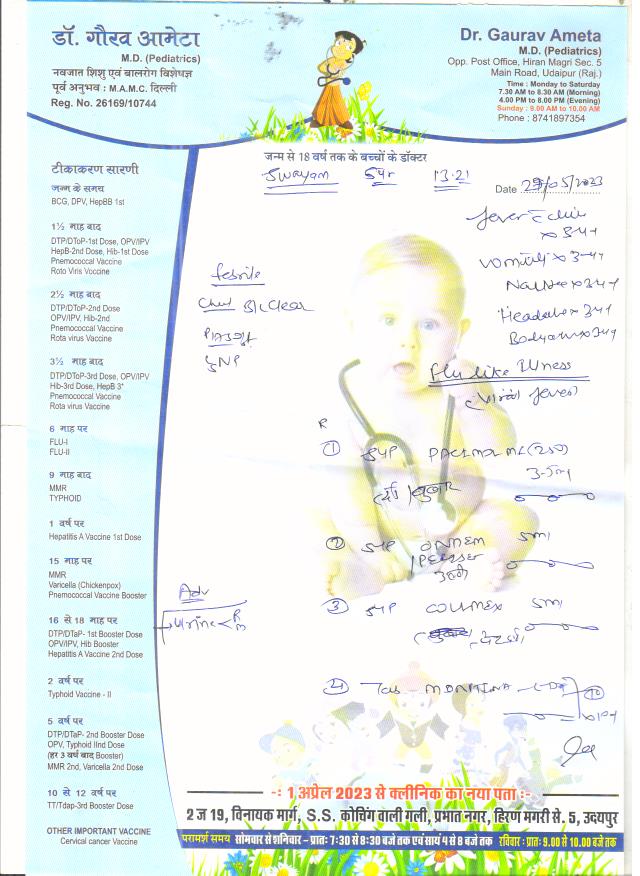 डॉ. गौरव आमेटा
M.D. (Pediatrics)
नवजात शिशु एवं बालरोग विशेषज्ञ
पूर्व अनुभव : M.A.M.C. दिल्ली
Reg. No. 26169/10744
Dr. Gaurav Ameta
M.D. (Pediatrics)
Opp. Post Office, Hiran Magri Sec. 5
Main Road, Udaipur (Raj.)
Time : Monday to Saturday
7.30 AM to 8.30 AM (Morning)
4.00 PM to 8.00 PM (Evening)
Sunday : 9.00 AM to 10.00 AM
Phone : 8741897354
जन्म से 18 वर्ष तक के बच्चों के डॉक्टर
Swayam 5yr 13.21
Date 29/05/2023
टीकाकरण सारणी
जन्म के समय
BCG, DPV, HepBB 1st
1½ माह बाद
DTP/DToP-1st Dose, OPV/IPV
HepB-2nd Dose, Hib-1st Dose
Pnemococcal Vaccine
Roto Viris Voccine
2½ माह बाद
DTP/DToP-2nd Dose
OPV/IPV, Hib-2nd
Pnemococcal Vaccine
Rota virus Vaccine
3½ माह बाद
DTP/DToP-3rd Dose, OPV/IPV
Hib-3rd Dose, HepB 3*
Pnemococcal Vaccine
Rota virus Vaccine
6 माह पर
FLU-I
FLU-II
9 माह बाद
MMR
TYPHOID
1 वर्ष पर
Hepatitis A Vaccine 1st Dose
15 माह पर
MMR
Varicella (Chickenpox)
Pnemococcal Vaccine Booster
16 से 18 माह पर
DTP/DTaP- 1st Booster Dose
OPV/IPV, Hib Booster
Hepatitis A Vaccine 2nd Dose
2 वर्ष पर
Typhoid Vaccine - II
5 वर्ष पर
DTP/DTaP- 2nd Booster Dose
OPV, Typhoid IInd Dose
(हर 3 वर्ष बाद Booster)
MMR 2nd, Varicella 2nd Dose
10 से 12 वर्ष पर
TT/Tdap-3rd Booster Dose
OTHER IMPORTANT VACCINE
Cervical cancer Vaccine
fever
vomiting
Nausea
Headache
febrile
Chest Clear
Flu like illness
(viral fever)
R
① Syp (250)
बुखार
② Syp 5ml
③ Syp 5ml
④ Tab
Adv
Urine R M
-: 1 अप्रेल 2023 से क्लीनिक का नया पता :-
2 ज 19, विनायक मार्ग, S.S. कोचिंग वाली गली, प्रभात नगर, हिरण मगरी से. 5, उदयपुर
परामर्श समय सोमवार से शनिवार – प्रातः 7:30 से 8:30 बजे तक एवं सायं 4 से 8 बजे तक रविवार : प्रातः 9.00 से 10.00 बजे तक